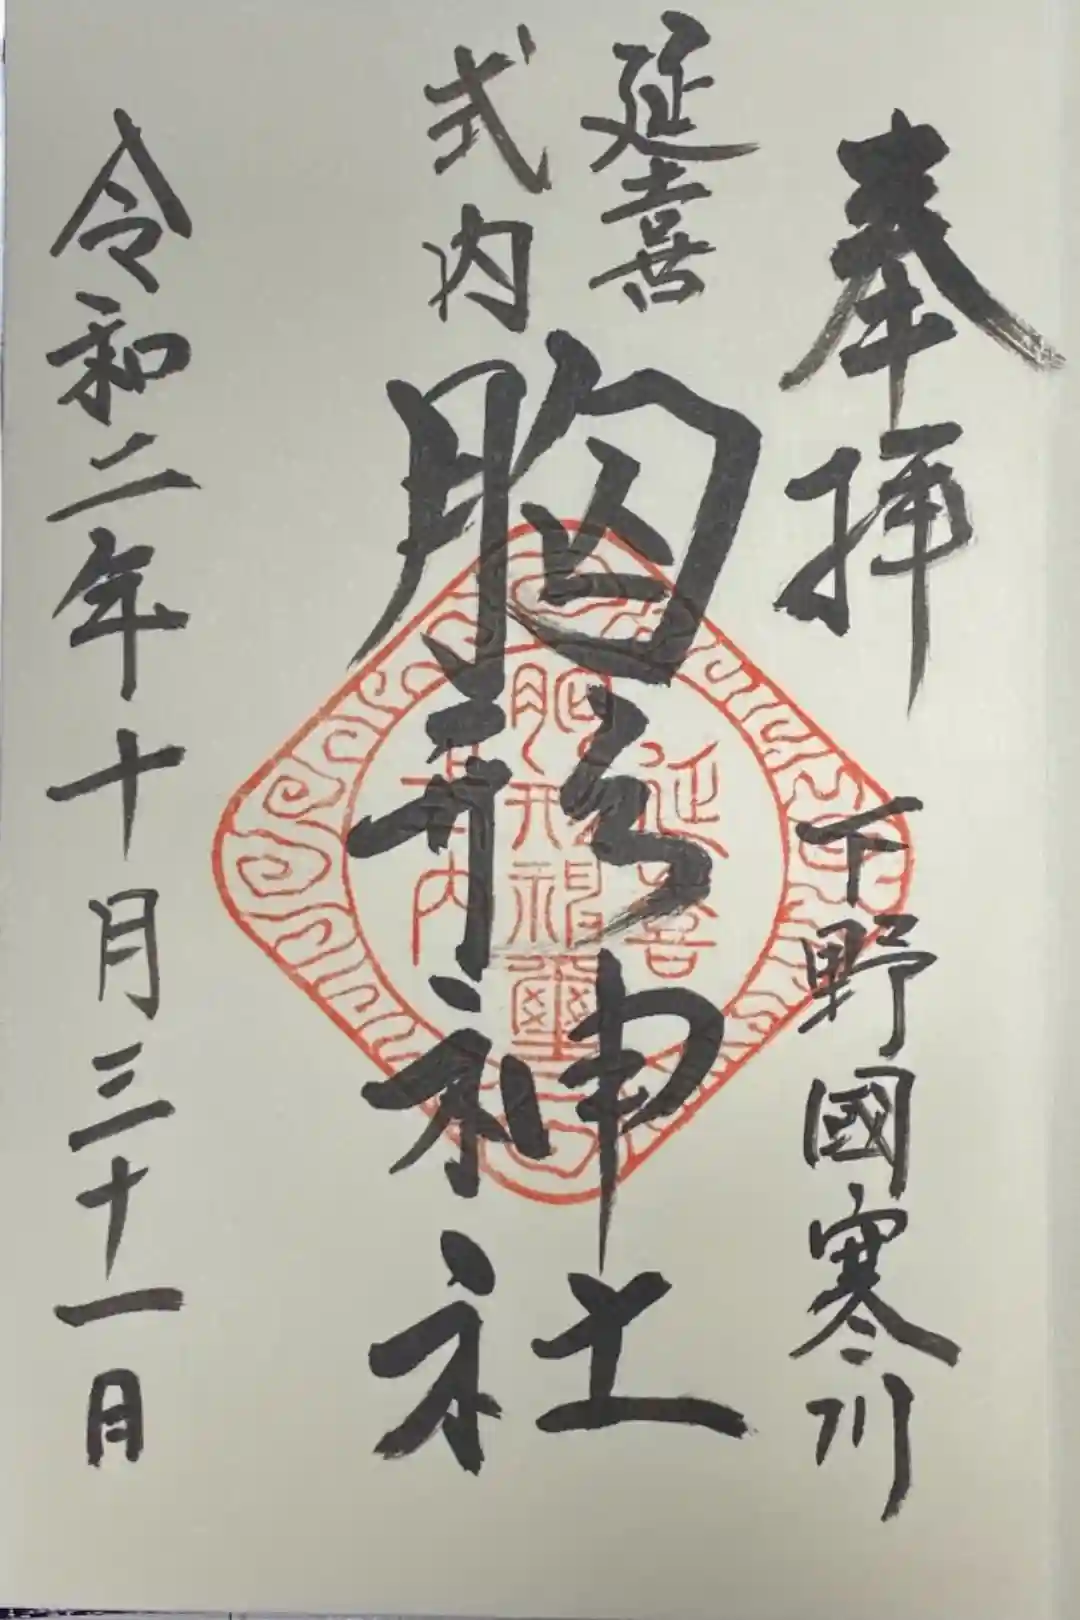 奉拝
下野國寒川
延喜
式内
胸形神社
令和二年十月三十一日
延喜
胸形神璽
式内